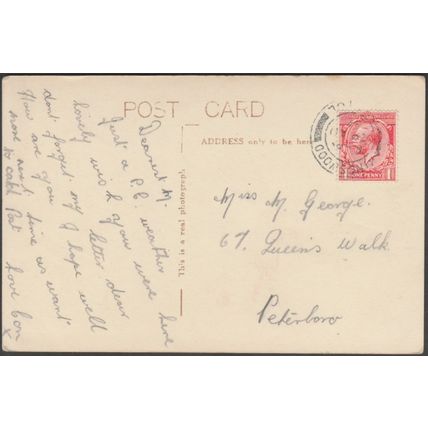 POST CARD
ADDRESS only to be here
This is a real photograph
Dearest M.
Just a P.C. weather
lovely wish you were here
dont forget my letter dear
How are you I hope well
more next time as want
to catch Post Love Con
x
Miss M. George.
67. Queens Walk.
Peterboro
ONE PENNY